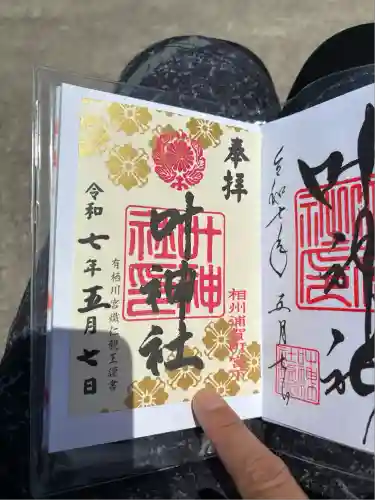 奉拝
叶神社
叶神社印
相州浦賀
有栖川宮熾仁親王謹書
令和七年五月七日
叶神社
令和七年五月七日